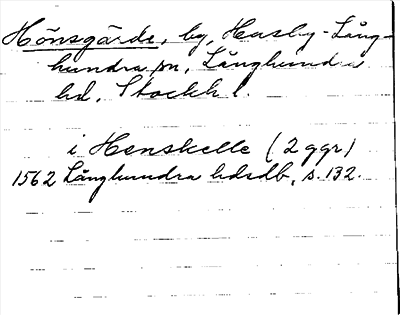 Hönsgärde, by, Husby-Lång-
hundra sn, Långhundra
hd, Stockh l.
i Henskelle (2 ggr)
1562 Långhundra hdsdb, s. 132.